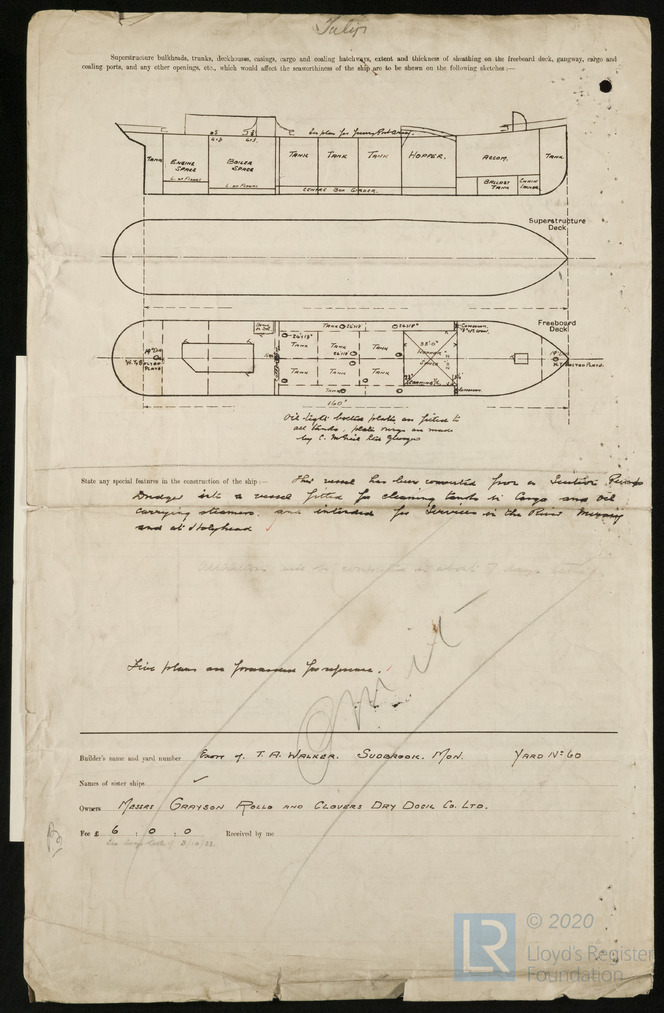 Tulip
Superstructure bulkheads, trunks, deckhouses, casings, cargo and coaling hatchways, extent and thickness of sheathing on the freeboard deck, gangway, cargo and
coaling ports, and any other openings, etc., which would affect the seaworthiness of the ship are to be shewn on the following sketches :—
See plan for
TANK
ENGINE SPACE
BOILER SPACE
TANK
TANK
TANK
HOPPER.
ACCOM.
TANK
BALLAST TANK
CHAIN LOCKER
CENTRE BOX GIRDER.
Superstructure
Deck
Freeboard
Deck
TANK
TANK
TANK
TANK
TANK
TANK
TANK
TANK
W.T. BOLTED PLATE
W.T. BOLTED PLATE.
160'
Oil tight bolted plates are fitted to
all tanks; plate rings are made
by C. McNeil Ltd Glasgow
State any special features in the construction of the ship :— This vessel has been converted from a Suction Pump
Dredger into a vessel fitted for cleaning tanks in Cargo and oil
carrying steamers, and intended for Services in the River Mersey
and at Holyhead
Alterations will be completed in about 7 days time
Five plans are forwarded for reference.
Omit
Builder's name and yard number T. A. WALKER. SUDBROOK. MON. YARD No 60
Names of sister ships
Owners MESSRS GRAYSON ROLLO AND CLOVERS DRY DOCK CO. LTD.
Fee £ 6 : 0 : 0 Received by me
© 2020
LR Lloyd's Register
Foundation